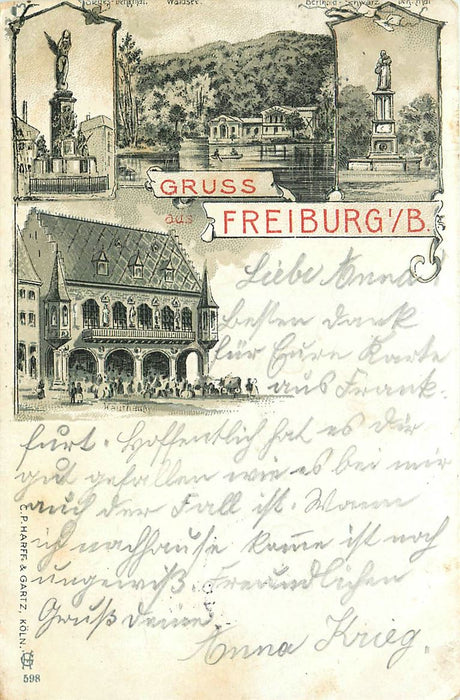 Siegesdenkmal. Waldsee. Berthold-Schwarz-Denkmal
GRUSS
aus
FREIBURG I/B.
Kaufhaus
Liebe Anna!
Besten Dank
für Eure Karte
aus Frank-
furt. Hoffentlich hat es dir
gut gefallen wie es bei mir
auch der Fall ist. Wann
ich nachhause komme ist noch
ungewiß. Freundlichen
Gruß deine
Anna Krieg.
C.P. HARFF & GARTZ, KÖLN.
598